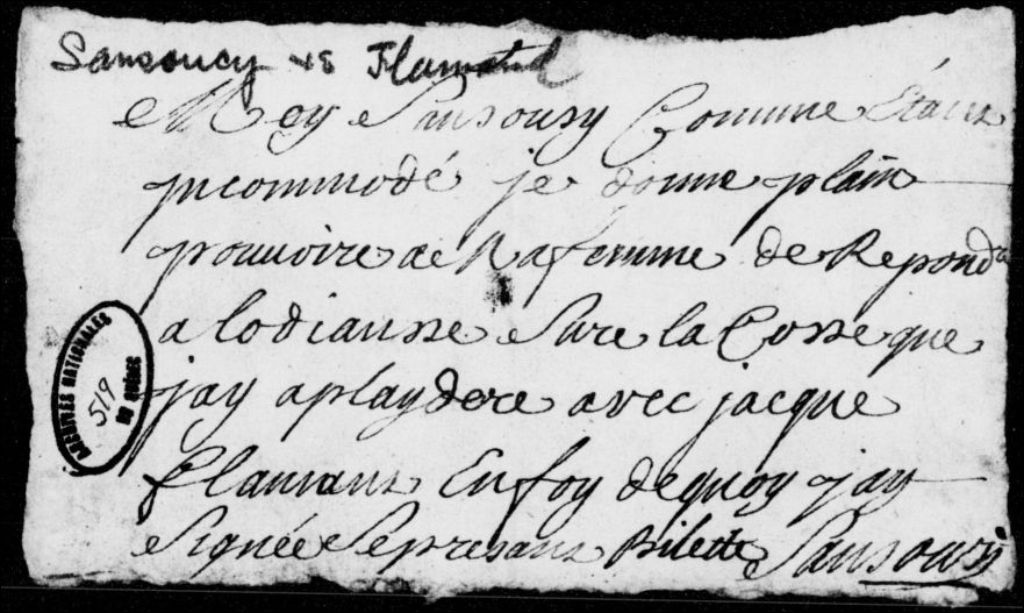 Sansoucy vs Flamand
Moy Sansousy Comme Étant
jncommodé je donne plain
pouvoire a Ma femme de Repondre
a lodiansse Sure la Cosse que
jay a playdere avec jacque
flamant En foy dequoy jay
Signée Se presant Bilette Sansousy
ARCHIVES NATIONALES
DU QUÉBEC
519